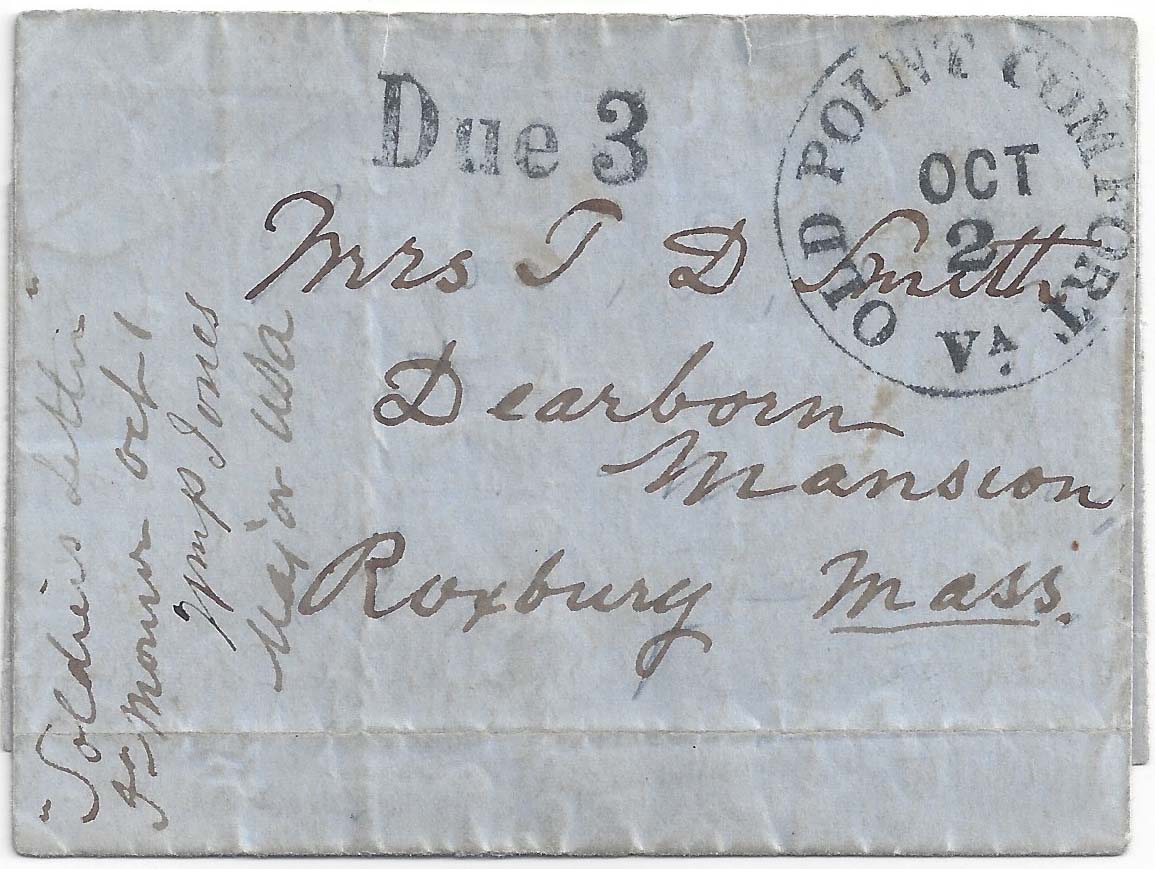 Due 3
OLD POINT COMFORT
OCT
2
VA.
Mrs T D Smith
Dearborn
Mansion
Roxbury Mass.
"Soldiers Letter"
Ft Monroe Oct 1
Jones
Major USA